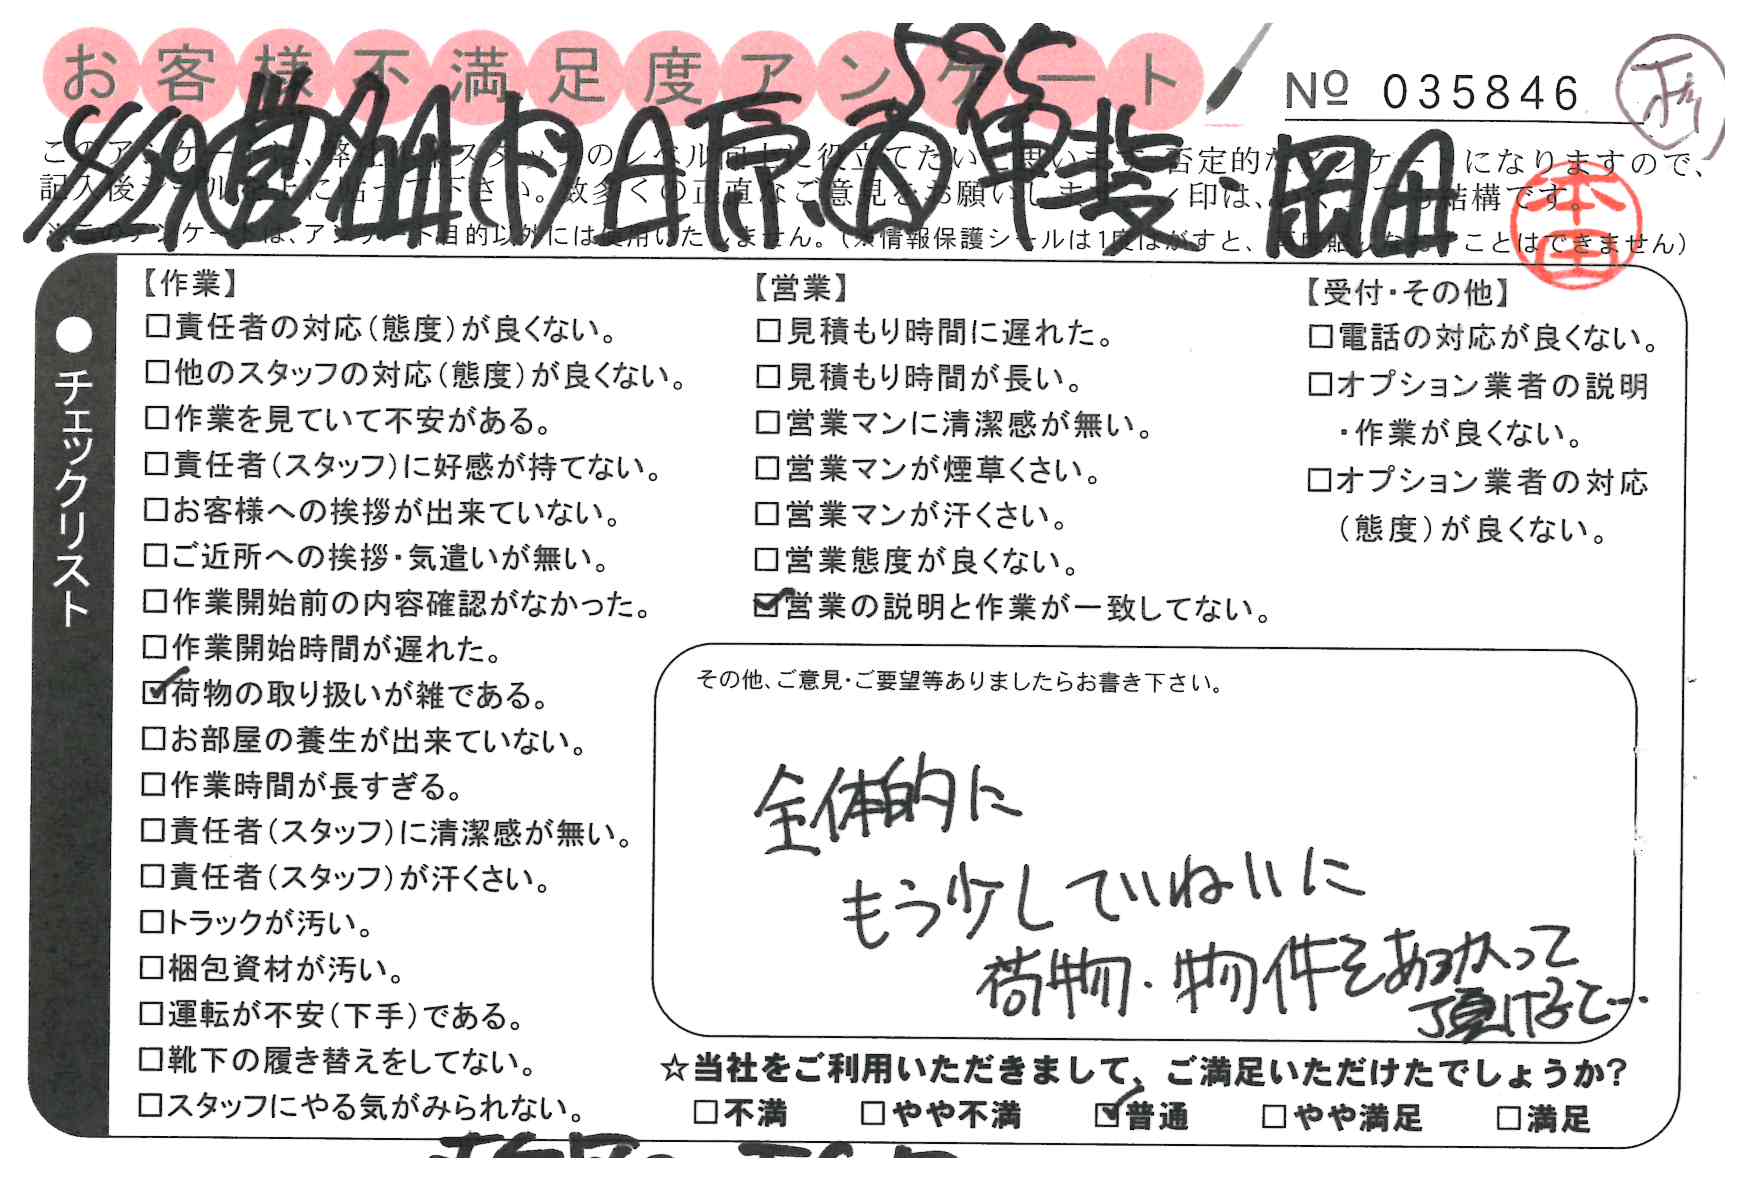 お客様不満足度アンケート
No 035846
記入後シールを上に貼って下さい。数多くの正直なご意見をお願いします。
本田
甲斐・岡田
●チェックリスト
【作業】
□責任者の対応(態度)が良くない。
□他のスタッフの対応(態度)が良くない。
□作業を見ていて不安がある。
□責任者(スタッフ)に好感が持てない。
□お客様への挨拶が出来ていない。
□ご近所への挨拶・気遣いが無い。
□作業開始前の内容確認がなかった。
□作業開始時間が遅れた。
☑荷物の取り扱いが雑である。
□お部屋の養生が出来ていない。
□作業時間が長すぎる。
□責任者(スタッフ)に清潔感が無い。
□責任者(スタッフ)が汗くさい。
□トラックが汚い。
□梱包資材が汚い。
□運転が不安(下手)である。
□靴下の履き替えをしてない。
□スタッフにやる気がみられない。
【営業】
□見積もり時間に遅れた。
□見積もり時間が長い。
□営業マンに清潔感が無い。
□営業マンが煙草くさい。
□営業マンが汗くさい。
□営業態度が良くない。
☑営業の説明と作業が一致してない。
【受付・その他】
□電話の対応が良くない。
□オプション業者の説明
・作業が良くない。
□オプション業者の対応
(態度)が良くない。
その他、ご意見・ご要望等ありましたらお書き下さい。
全体的に
もう少していねいに
荷物・物件をあつかって
頂けると…
☆当社をご利用いただきまして、ご満足いただけたでしょうか?
□不満 □やや不満 ☑普通 □やや満足 □満足